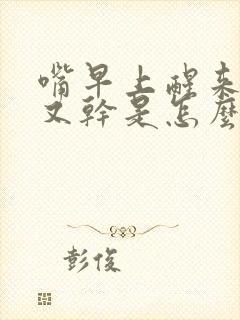 嘴早上醒来
又幹是怎麼
彭俊